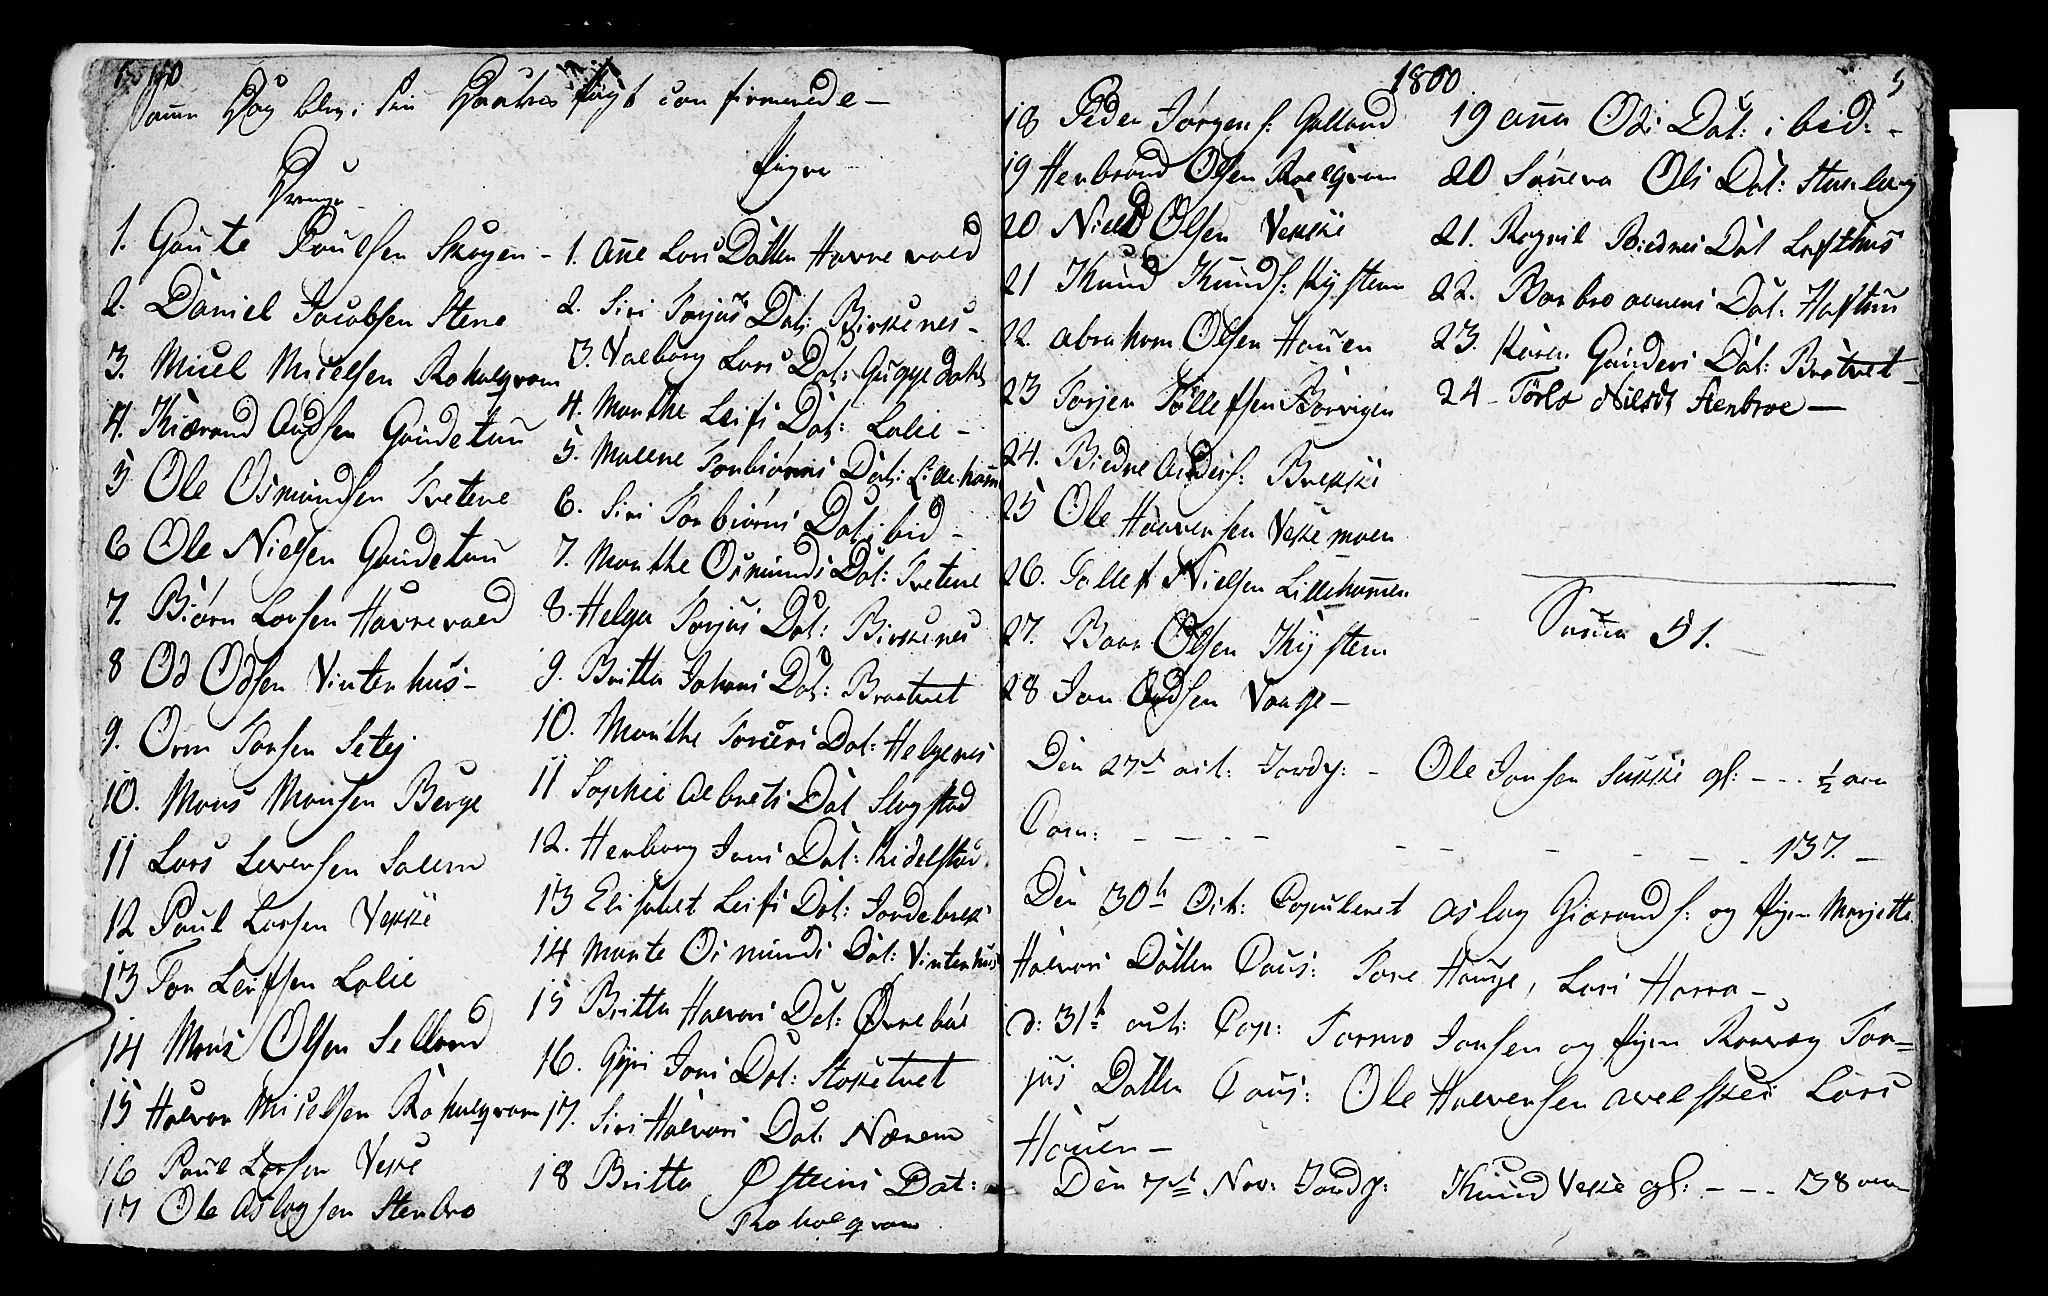 Samme Dag blev i Sin Daabes pagt confirmerede -
Drenge
1. Gaute Poulsen Skogen -
2. Daniel Jacobsen Stene
3. Micel Micelsen Roholqvam
4. Kiærand Audsen Gundetun
5 Ole Osmundsen Tvetene
6 Ole Nielsen Gundetun
7. Biørn Larsen Havrevold
8 Od Odsen Vinterhus -
9. Orm Tonsen Setej
10. Mons Monsen Berge
11 Lars Levensen Salem
12 Paul Larsen Veske
13 Ton Leifsen Lalie
14 Mons Olsen Selland
15 Halvor Micelsen Roholqvam
16 Paul Larsen Veske
17 Ole Aslagsen Stenbro
Piger
1. Ane Lars Datter Havrevold
2. Siri Torjus Dat: Birkenes -
3. Valborg Lars Dat: Guggedahl
4. Marithe Leifs Dat: Lalie -
5. Malene Torbiørns Dat: Lilleham
6. Siri Torbiørns Dat: ibid -
7. Marithe Osmunds Dat: Tvetene
8. Helga Torjus Dat: Birkenes
9. Britta Johans Dat: Braatvet
10. Marithe Dat: Helgenes
11 Sophie Albrets Dat Slagstad
12. Herborg Jons Dat: Kidelstad
13 Elisabet Leifs Dat: Jordebrek
14 Marite Osmunds Dat: Vinterhus
15 Britta Halvors Dat: Øvrebøe
16. Gyri Jons Dat: Stokketvet
17. Siri Halvors Dat: Nærem
18 Britta Østeins Dat:
Roholqvam
1800
5
18 Peder Jørgens: Golland
19 Herbrand Olsen Roelqvam
20 Niels Olsen Veske
21 Knud Knuds: Kysten
22. Abraham Olsen Hauen
23 Torjer Tollefsen Børvigen
24. Biedne Anders: Brekke
25 Ole Halvorsen Veskemoen
26. Tollef Nielsen Lillehamen
27. Baar Olsen Thysten
28 Jon Audsen Vaage -
19 Ana Ods Dat: ibid: -
20 Sønneva Ols Dat: Stuelang
21. Ragnil Biednes Dat Lofthus
22. Barbro Dat: Haftun
23. Karen Gunders Dat: Braatvet -
24 - Torbor Niels D Stenbroe -
Suma 51.
Den 27de oct: Jordf: - Ole Jonsen Sukke gl: - - - ½ aar
Dom: - - - - - - - - 137. -
Den 30te Oct: Copuleret Aslag Giærands: og Pigen Marjette
Halvors Datter Caus: Tore Hauge, Lars Harra -
d: 31te oct: Cop: Tormo Jonsen og Pigen Ranvog Tor=
jus Datter Caus: Ole Halvorsen Lars
Hauen -
Den 7de Nov: Jordf: Knud Veske gl: - - - 38 aar